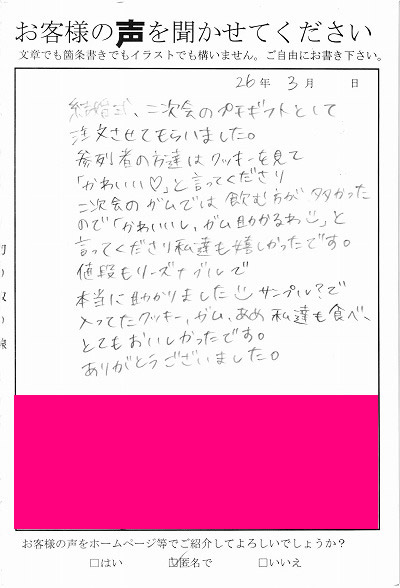 お客様の声を聞かせてください
文章でも箇条書きでもイラストでも構いません。ご自由にお書き下さい。
26年 3月 日
結婚式、二次会のプチギフトとして
注文させてもらいました。
参列者の方達はクッキーを見て
「かわいい♡」と言ってくださり
二次会のガムでは飲む方が多かった
ので「かわいいし、ガム助かるわ☺」と
言ってくださり私達も嬉しかったです。
値段もリーズナブルで
本当に助かりました☺サンプル?で
入ってたクッキー、ガム、あめ私達も食べ、
とてもおいしかったです。
ありがとうございました。
お客様の声をホームページ等でご紹介してよろしいでしょうか?
□はい ☑匿名で □いいえ